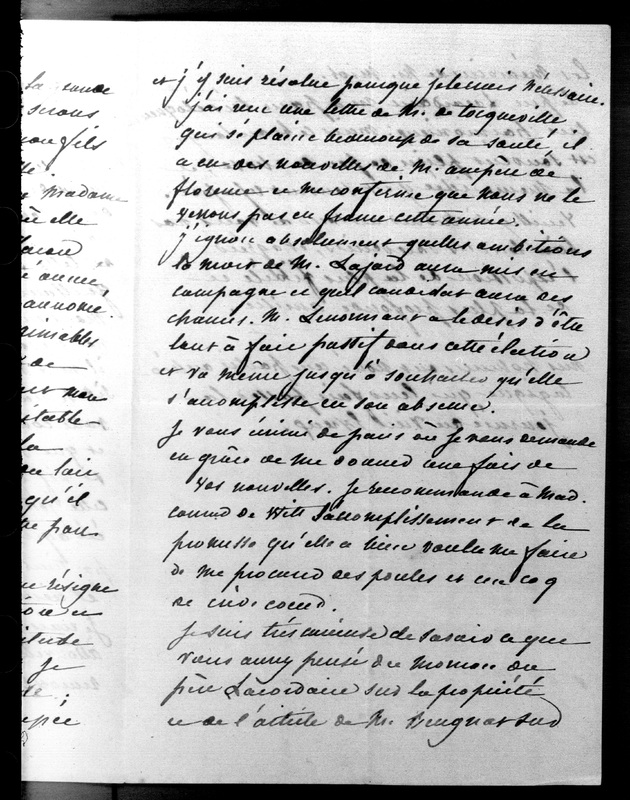 la
serons
mon fils
madame
elle
aimables
de
mon
la
qu'il
résigne
Je
et j'y suis résolue parce que je le crois nécessaire.
j'ai reçu une lettre de M. de tocqueville
qui se plaint beaucoup de sa santé, il
a eu des nouvelles de M. ampère de
florence et me confirme que nous ne le
verrons pas en france cette année.
j'ignore absolument quelles ambitions
la mort de M. Lajard aura mis en
campagne et quel candidat aura des
chances. M. Lenormant a le désir d'être
tout à fait passif dans cette élection
et va même jusqu'à souhaiter qu'elle
s'accomplisse en son absence.
Je vous écrirai de paris où je vous demande
en grâce de me donner une fois de
vos nouvelles. Je recommande à Mad.
de Witt l'accomplissement de la
promesse qu'elle a bien voulu me faire
de me procurer des poules et un coq
de crèvecoeur.
Je suis très curieuse de savoir ce que
vous aurez pensé du morceau du
père Lacordaire sur la propriété
et de l'article de M. sur